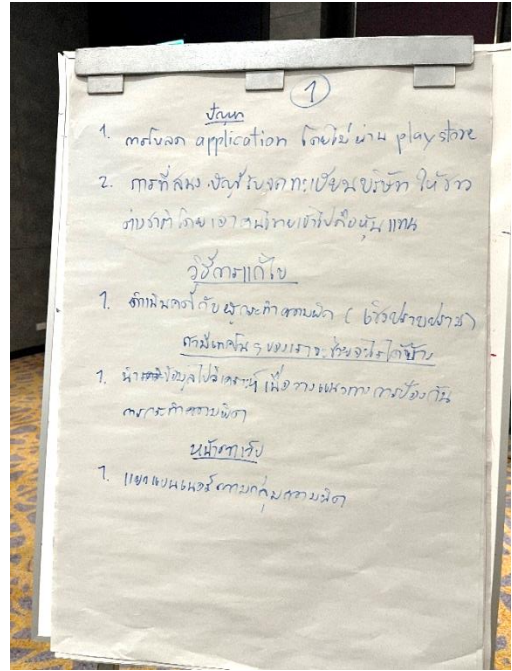 1
ปัญหา
1. การโหลด application โดยไม่ผ่าน play store
2. การที่สนง.บัญชีรับจดทะเบียนบริษัท ให้ชาว
ต่างชาติโดยเอาคนไทยเข้าไปถือหุ้นแทน
วิธีการแก้ไข
1. ดำเนินคดีกับผู้กระทำความผิด (เชิงปราบปราม)
ของเราจะช่วยอะไรได้บ้าง
1. นำข้อมูลไปวิเคราะห์ เพื่อวางแนวทางการป้องกัน
การกระทำความผิด
หน้าตาเว็บ
1. แยกแบนเนอร์ตามกลุ่มความผิด